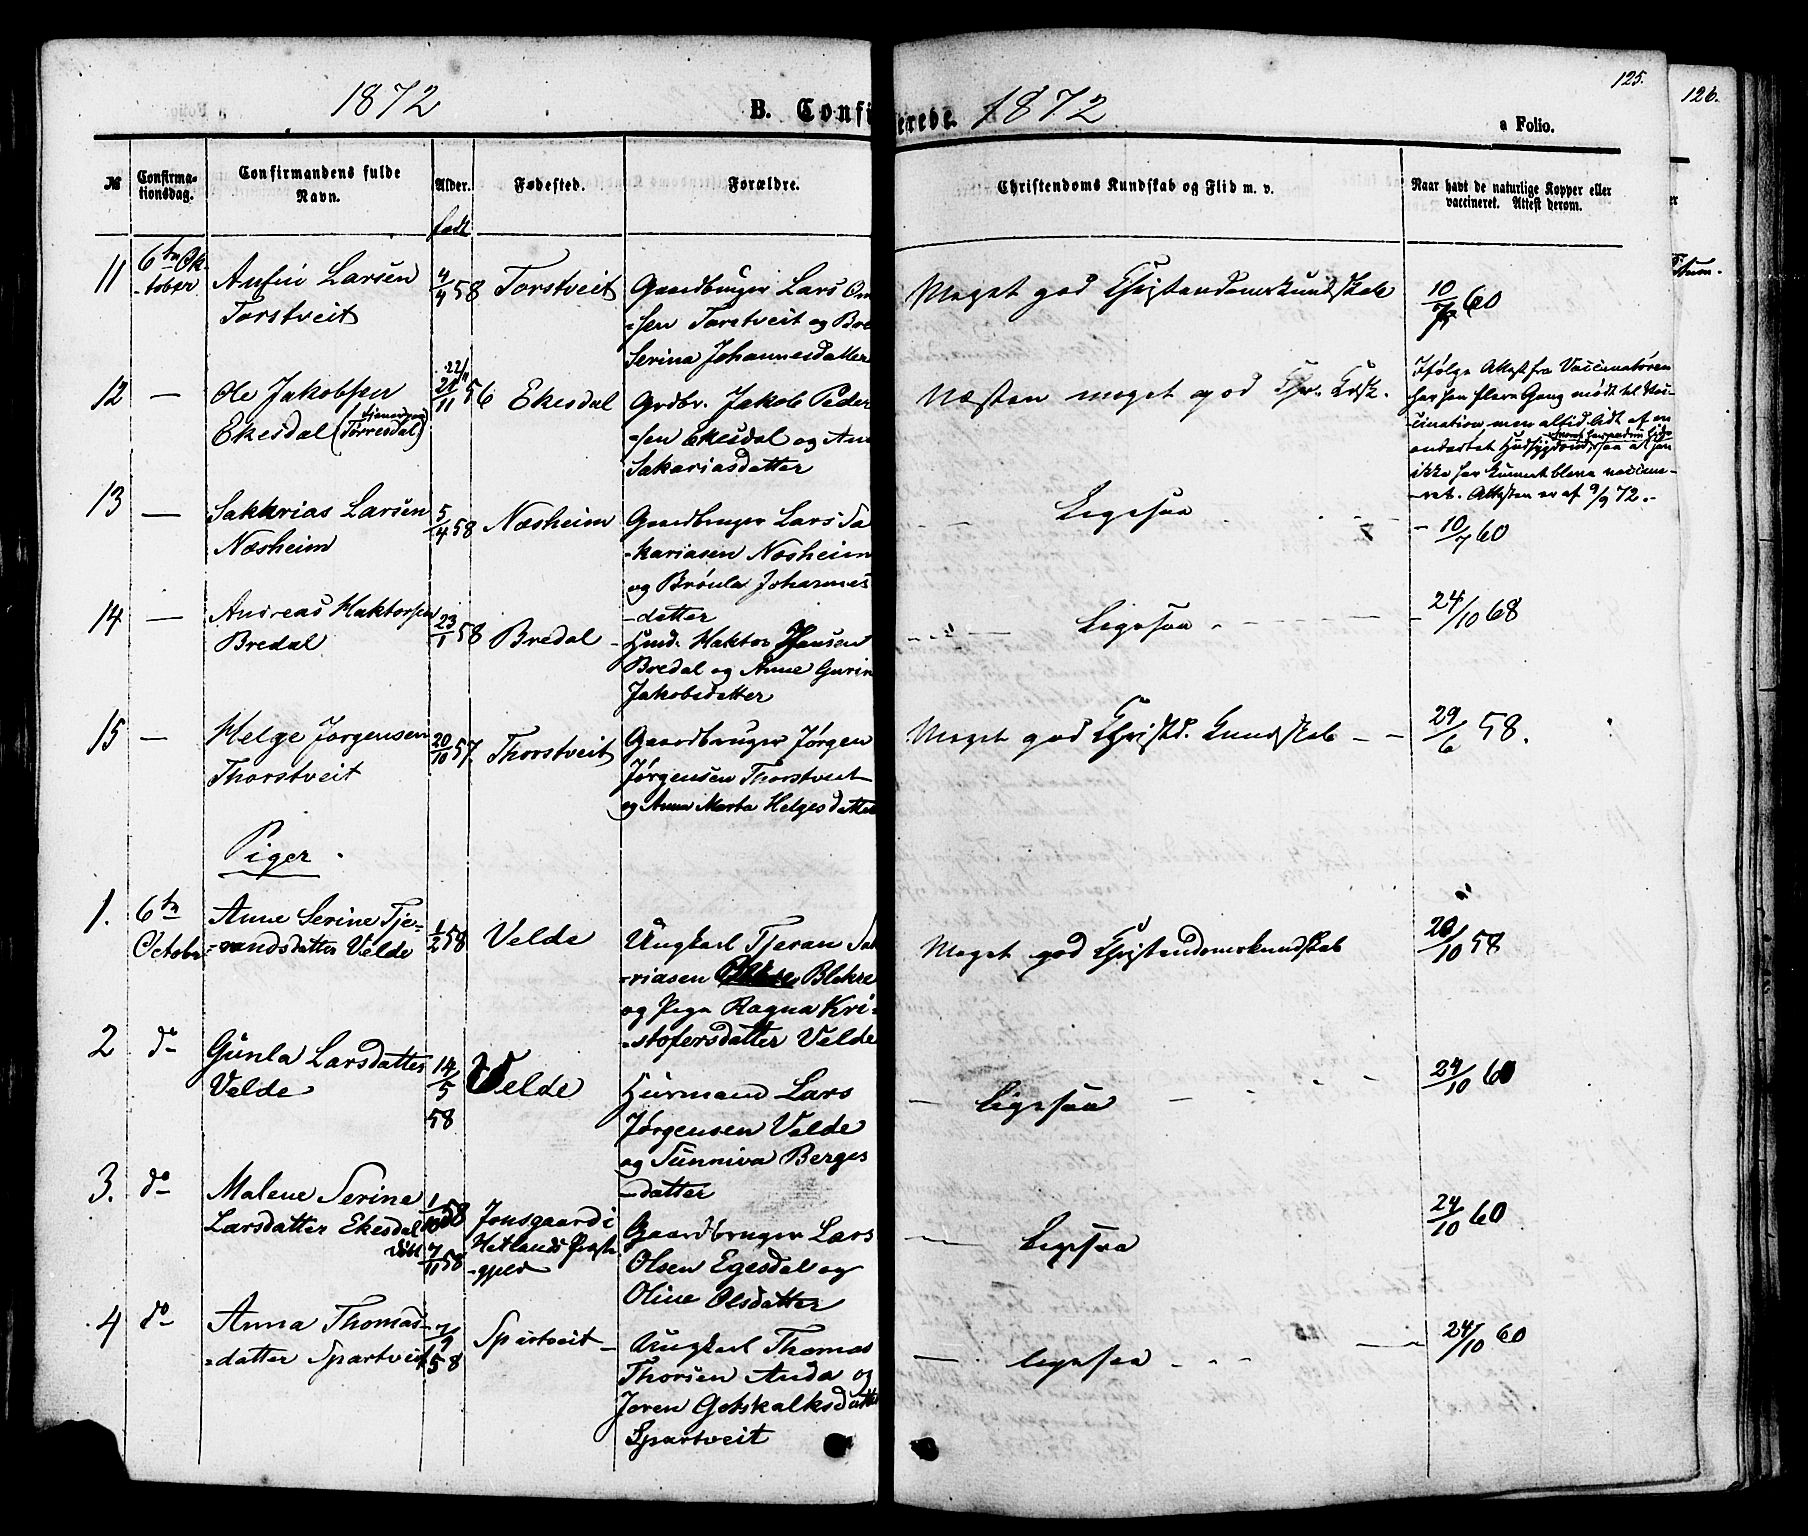 1872 B. Confirmerede. 1872 125. 126.
a Folio.
№ Confirmationsdag. Confirmandens fulde Navn. Alder. Fødested. Forældre. Christendoms Kundskab og Flid m. v. Naar havt de naturlige Kopper eller vaccineret. Attest derom.
født
11 6te Ok-
-tober
Anfin Larsen
Torstveit
4/4 58
Torstveit
Gaardbruger Lars Om
-sen Torstveit og Bre
Serina Johannesdatter
Meget god Christendomskundskab
10/7 60
12 —
Ole Jakobsen
Ekesdal (Tjenedreng Tørresdal)
22/11
21/11 56
Ekesdal
Grdbr. Jakob Peder
-sen Ekesdal og An
Sakariasdatter
Næsten meget god Chr. Kdsk.
Ifølge Attest fra Vaccinatøren
har han flere Gang mødt til Vac-
-cination, men altid lidt af en
ondartet Hudsygdom, saa at han
ikke har kunnet blive vaccine-
-ret. Attesten er af 9/9 72.-
13 —
Sakkrias Larsen
Næsheim
5/4 58
Næsheim
Gaardbruger Lars Sa
-kariasen Nesheim
og Brónla Johannes
-datter
Ligesaa
- 10/7 60
14 —
Andreas Haktorsen
Bredal
23/1 58
Bredal -
Hmd. Haktor Hansen
Bredal og Anne Gurin
Jakobsdatter
Ligesaa
- 24/10 68
15 —
Helge Jørgensen
Thorstveit
20/10 57.
Thorstveit
Gaardbruger Jørgen
Jørgensen Thorstveit
og Anna Marta Helgesdatter
Meget god Christd. Kundskab - -
29/6 58.
Piger.
1. 6te
Octobe
Anne Serine Tje-
-randsdatter Velde
1/2 58
Velde
Ungkarl Tjeran Sak
-riasen Blekre
og Pige Ragna Kri-
-stofersdatter Velde
Meget god Christendomskundskab
20/10 58
2 do
Gunla Larsdatter
Velde
14/5
58
Velde
Huusmand Lars
Jørgensen Velde
og Sunniva Berges
-datter
— Ligesaa
24/10 60
3. do
Malene Serine
Larsdatter Ekesdal
døbt 7/11 58
1/10 58
Jonsgaard i
Hetlands Præste
-gjeld
Gaardbruger Lars
Olsen Egesdal og
Oline Olsdatter
— Ligesaa
24/10 60
4 do
Anna Thomas-
-datter Spartveit
7/9
58
Spartveit -
Ungkarl Thomas
Thorsen Anda og
Joren Gotskalksdatter
Spartveit
— ligesaa
24/10 60